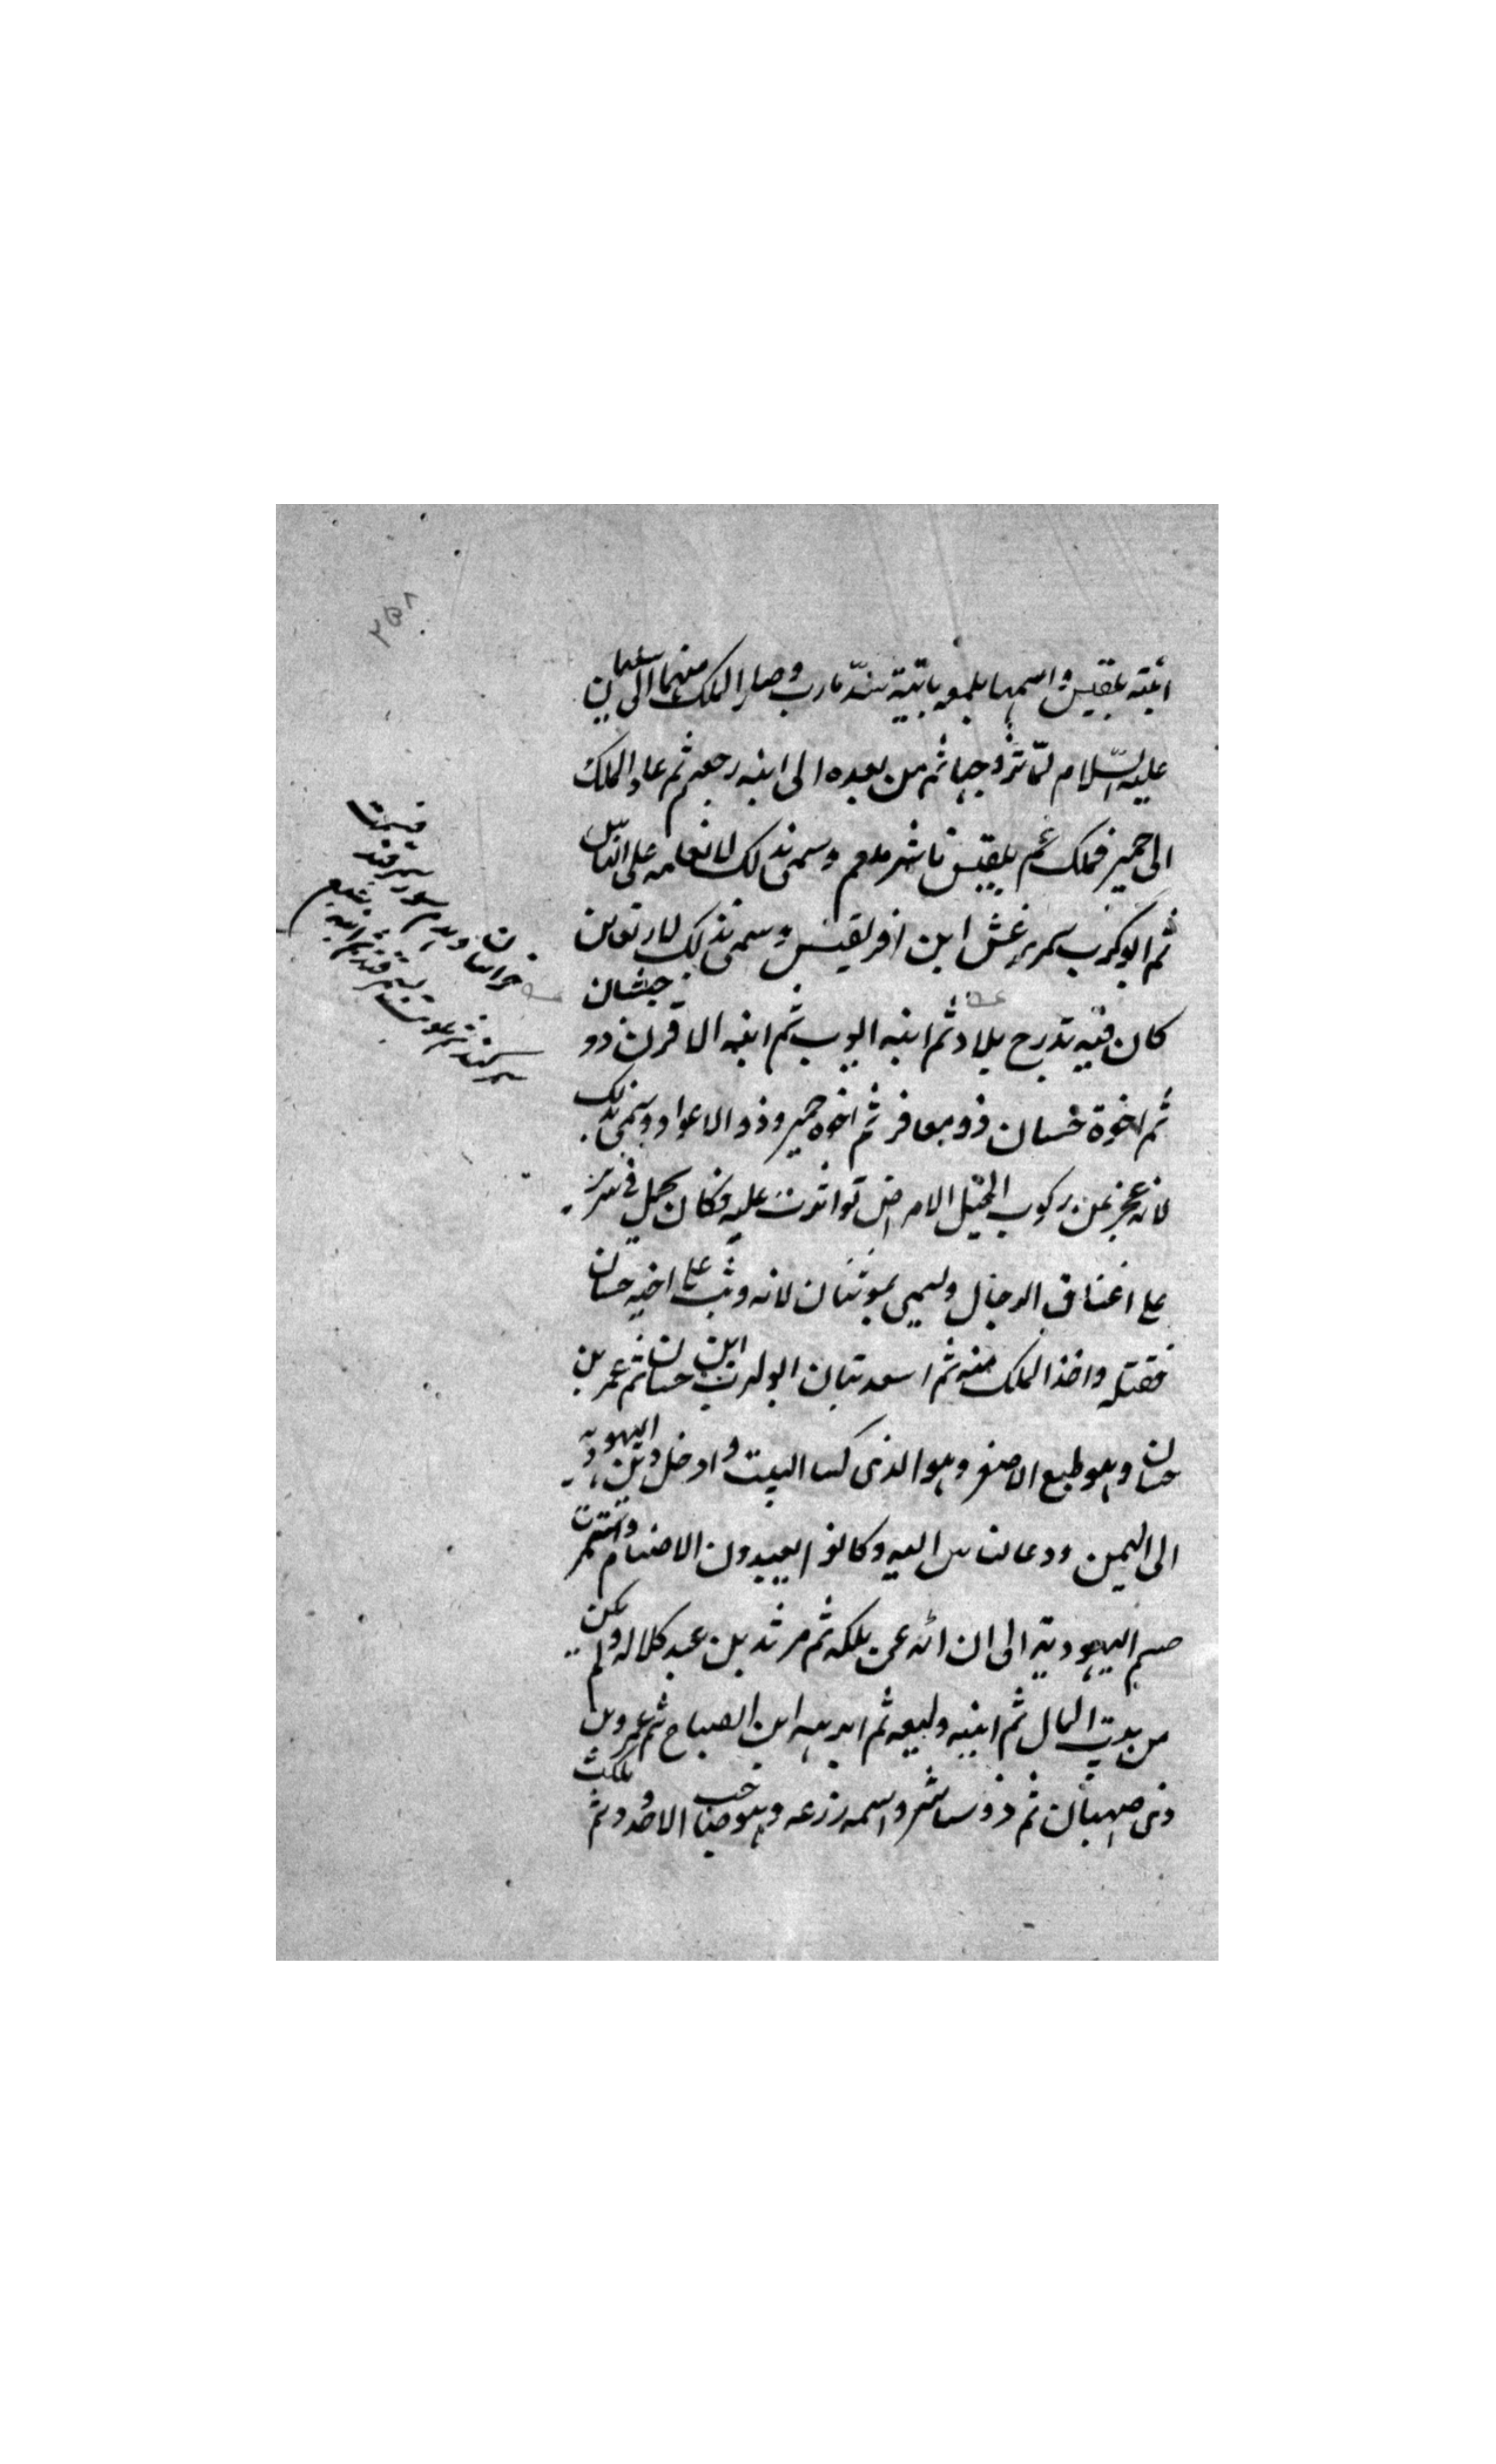 ابنته بلقيس واسمها بلمعه بانية سدّ مارب وصار الملك منها الى سليمان
عليه السّلام لمّا تزوجها ثم من بعده الى ابنه رجعم ثم عاد الملك
الى حمير فملك عم بلقيس ناشر ملعم وسمى بذلك لانعامه على الناس
ثم ابو كرب سمر رعش ابن افريقيس وسمى بذلك لارتعاش
كان فيه تدرح بلاد ثم ابنه ابو ب ثم ابنه الاقرن ذو جيشان
ثم اخوة خسان ذو معافر ثم اخوه حمير وذو الاعواد وسمى بذلك
لانه عجز عن ركوب الخيل لامراض تواترت عليه فكان يحمل فى سرير
على اعناق الرجال وسمى بموثبان لانه وثب على اخيه حسان
فقتله واخذ الملك منه ثم اسعد تبان ابو كرب ابن حسان ثم عمر بن
حسان وهو طبع الاصغر وهو الذى كسا البيت وادخل دين اليهوديه
الى اليمن ودعا لناس اليه وكانوا يعبدون الاصنام واستمرت
اليهودية الى ان ثم مرثد بن عبد كلاله ولم يكن
من بيت المال ثم ابنيه وليعه ثم ابرهه ابن الصباح ثم عمرو بن
ذى صهبان ثم ذو سناتر واسمه زرعه وهو صاحب الاخدود ثم ملكت
خراسان وهدم سور سمرقند
فسمت
سمرقند ثم ابنه تبع
٢٥٨